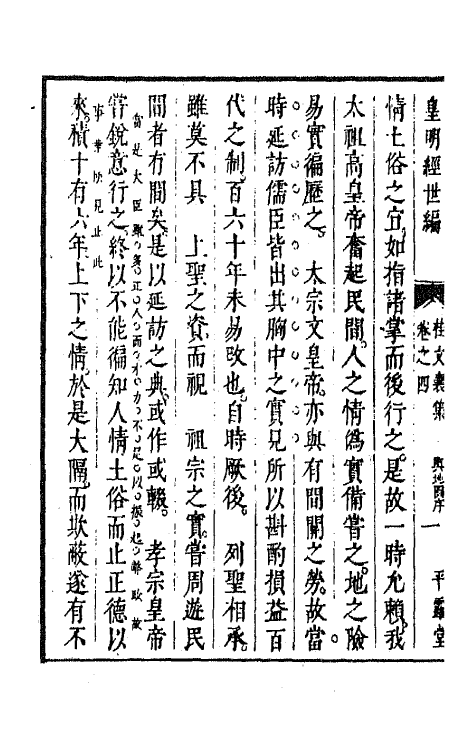 皇明經世編
桂文襄集
卷之四
輿地圖序
一
平露堂
情土俗之宜如指諸掌而後行之是故一時允賴我
太祖高皇帝奮起民間人之情偽實備嘗之地之險
易實徧歷之　太宗文皇帝亦與有間關之勞故當
時延訪儒臣皆出其胸中之實見所以斟酌損益百
代之制百六十年未易攺也自時厥後　列聖相承
雖莫不具　上聖之資而視　祖宗之實嘗周遊民
間者有間矣是以延訪之典或作或輟　孝宗皇帝
當是大臣
人而才力不足以振起
政故
嘗銳意行之終以不能徧知人情土俗而止正德以
事業
見止此
來積十有六年上下之情於是大隔而欺蔽遂有不